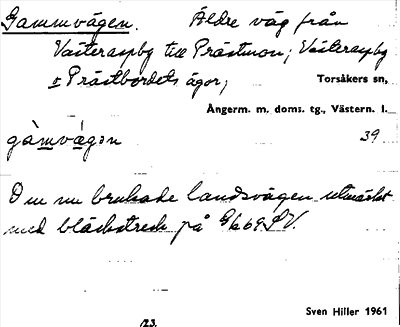 Gammvägen. Äldre väg från
Västeraspby till Prästmon; Västeraspby
o Prästbordets ägor; Torsåkers sn,
Ångerm. m. doms. tg., Västern. l.
gàmvä́gən 39
Den nu brukade landsvägen utmärkt
med bläckstreck på G669SV.
Sven Hiller 1961
123.